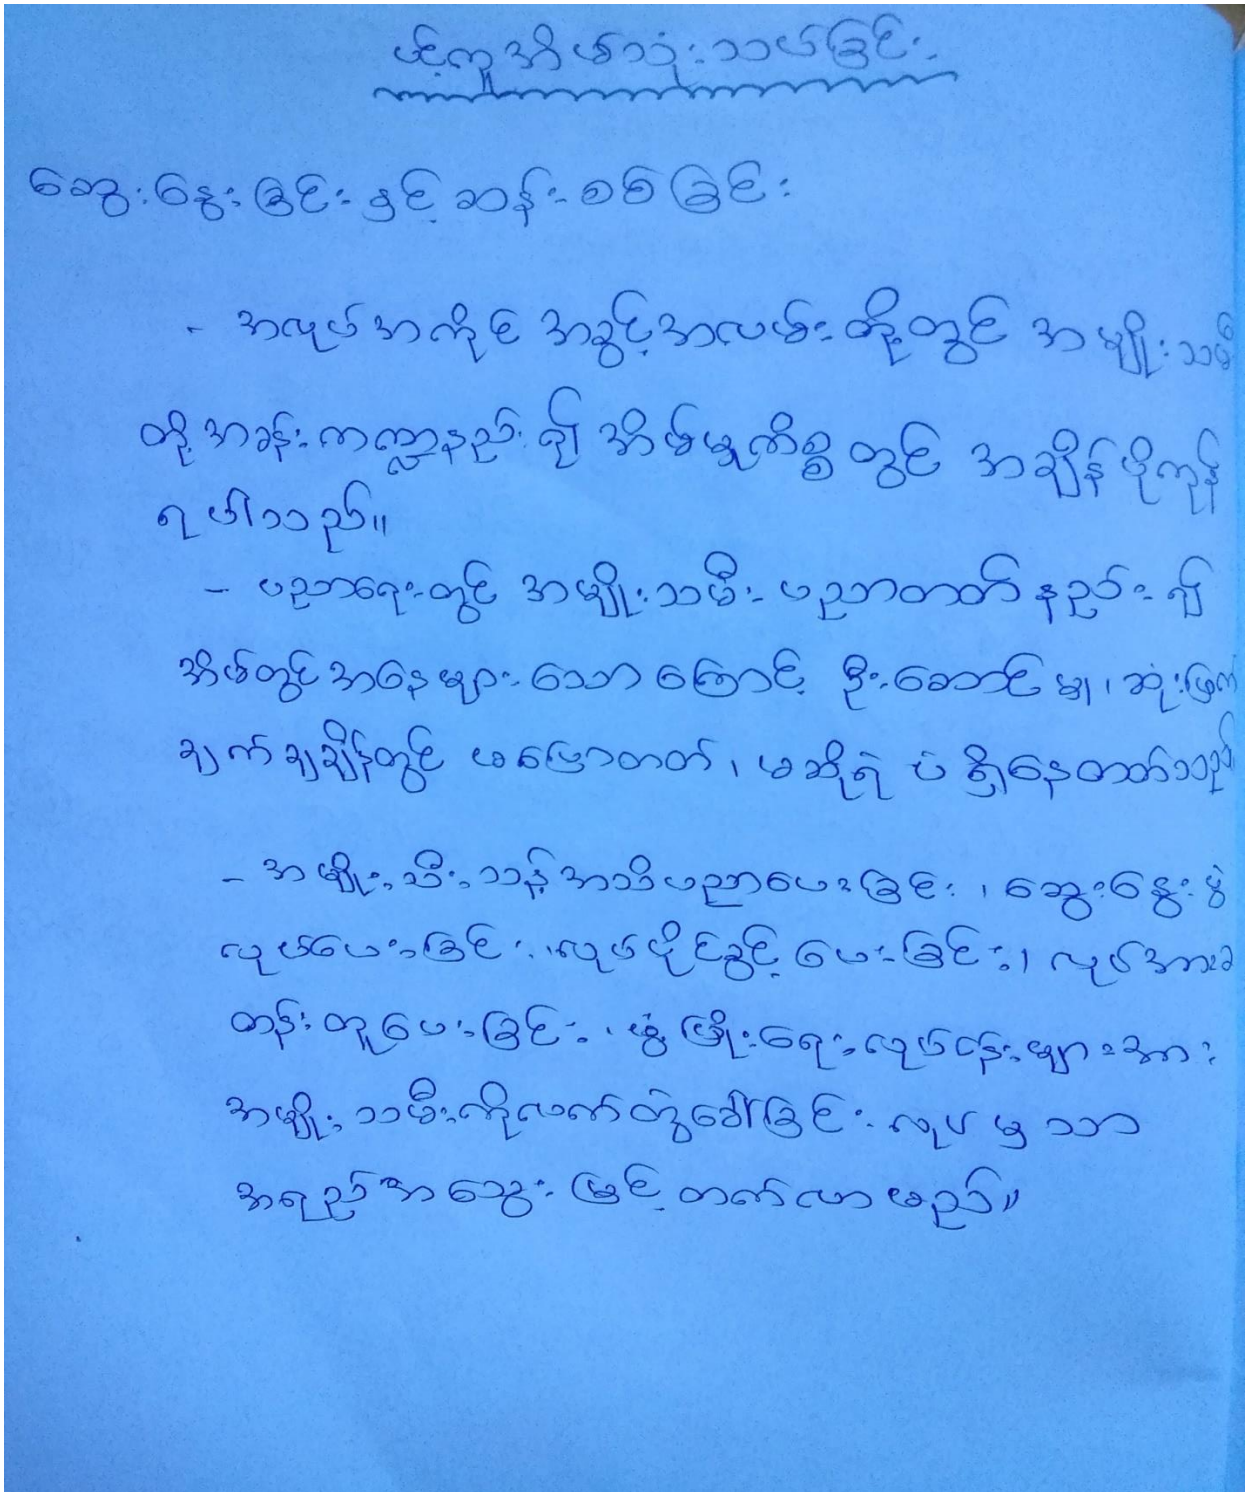 ပင့်ကူအိမ်သုံးသပ်ခြင်း
ဆွေးနွေးခြင်းနှင့်ဆန်းစစ်ခြင်း
- အလုပ်အကိုင် အခွင့်အလမ်းတို့တွင် အမျိုးသမီး
တို့အခန်းကဏ္ဍနည်း၍ အိမ်မှုကိစ္စတွင် အချိန်ပိုကုန်
ရပါသည်။
- ပညာရေးတွင် အမျိုးသမီးပညာတတ်နည်း၍
အိမ်တွင်အနေများသောကြောင့် ဦးဆောင်မှု၊ ဆုံးဖြတ်
ချက်ချချိန်တွင် မပြောတတ်၊ မဆိုရဲ ပဲ ရှိနေတတ်သည်
- အမျိုးသီးသန့်အသိပညာပေးခြင်း၊ ဆွေးနွေးပွဲ
လုပ်ပေးခြင်း၊ လုပ်ပိုင်ခွင့်ပေးခြင်း၊ လုပ်အားခ
တန်းတူပေးခြင်း၊ ဖွံ့ဖြိုးရေးလုပ်ငန်းများအား
အမျိုးသမီးကိုလက်တွဲခေါ်ခြင်းလုပ်မှသာ
အရည်အသွေးမြင့်တက်လာမည်။